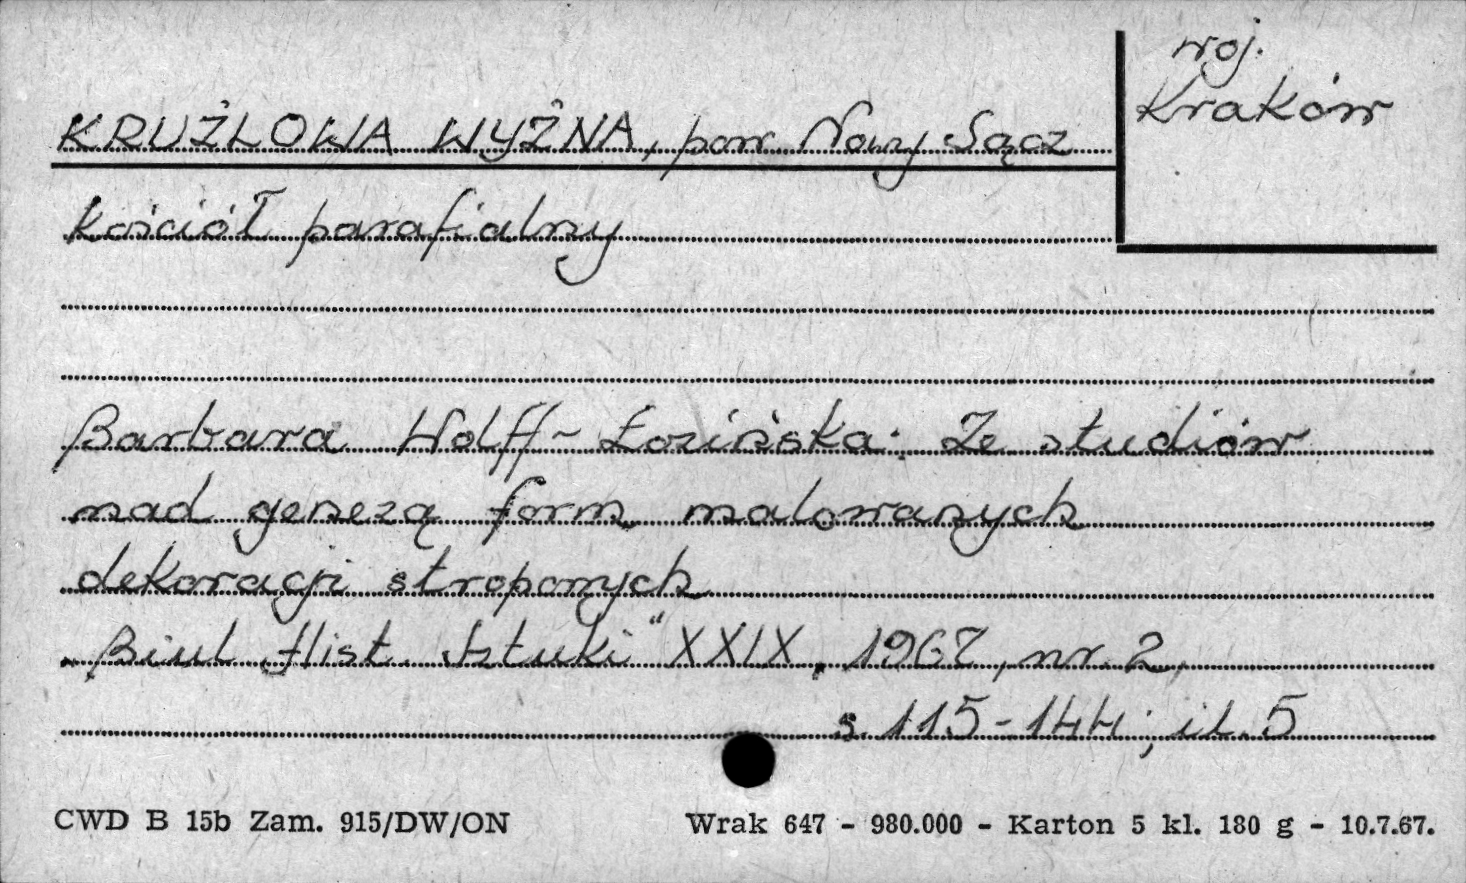 woj.
Kraków
KRUŻLOWA WYŻNA, pow. Nowy Sącz
Kościół parafialny
Barbara Wolff-Łozińska: Ze studiów
nad genezą form malowanych
dekoracji stropowych
„Biul. Hist. Sztuki" XXIX, 1967, nr. 2,
s. 115-144; il. 5
CWD B 15b Zam. 915/DW/ON Wrak 647 - 980.000 - Karton 5 kl. 180 g - 10.7.67.